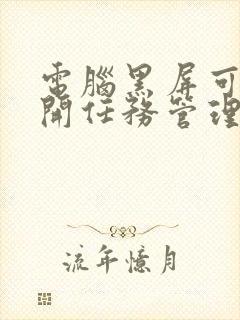 電腦黑屏可
開任務管理
流年憶月